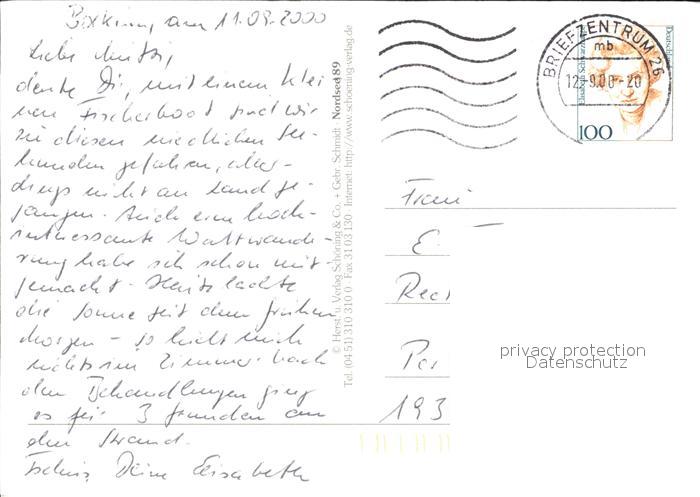 Borkum, am 11.09.2000
Liebe Mutti,
denke Dir, mit einem klei
nen Fischerboot sind wir
zu diesen niedlichen See-
hunden gefahren, aller-
dings nicht an Land ge-
gangen. Auch eine hoch-
interessante Wattwande-
rung habe ich schon mit
gemacht. Heute lachte
die Sonne seit dem frühen
Morgen - so hielt mich
nichts im Zimmer. Nach
den Behandlungen ging
es für 3 Stunden an
den Strand.
Tschüs, Deine Elisabeth
© Herst. u. Verlag Schöning & Co. + Gebr. Schmidt Nordsee 89
Tel. (04 51) 310 310 0 · Fax 31 03 130 · Internet: http://www.schoening-verlag.de
BRIEFZENTRUM 26
mb
12.-9.00-20
Deutsche
Elisabeth Schwarzhaupt
100
Frau
E
Rec
Par
193
privacy protection
Datenschutz